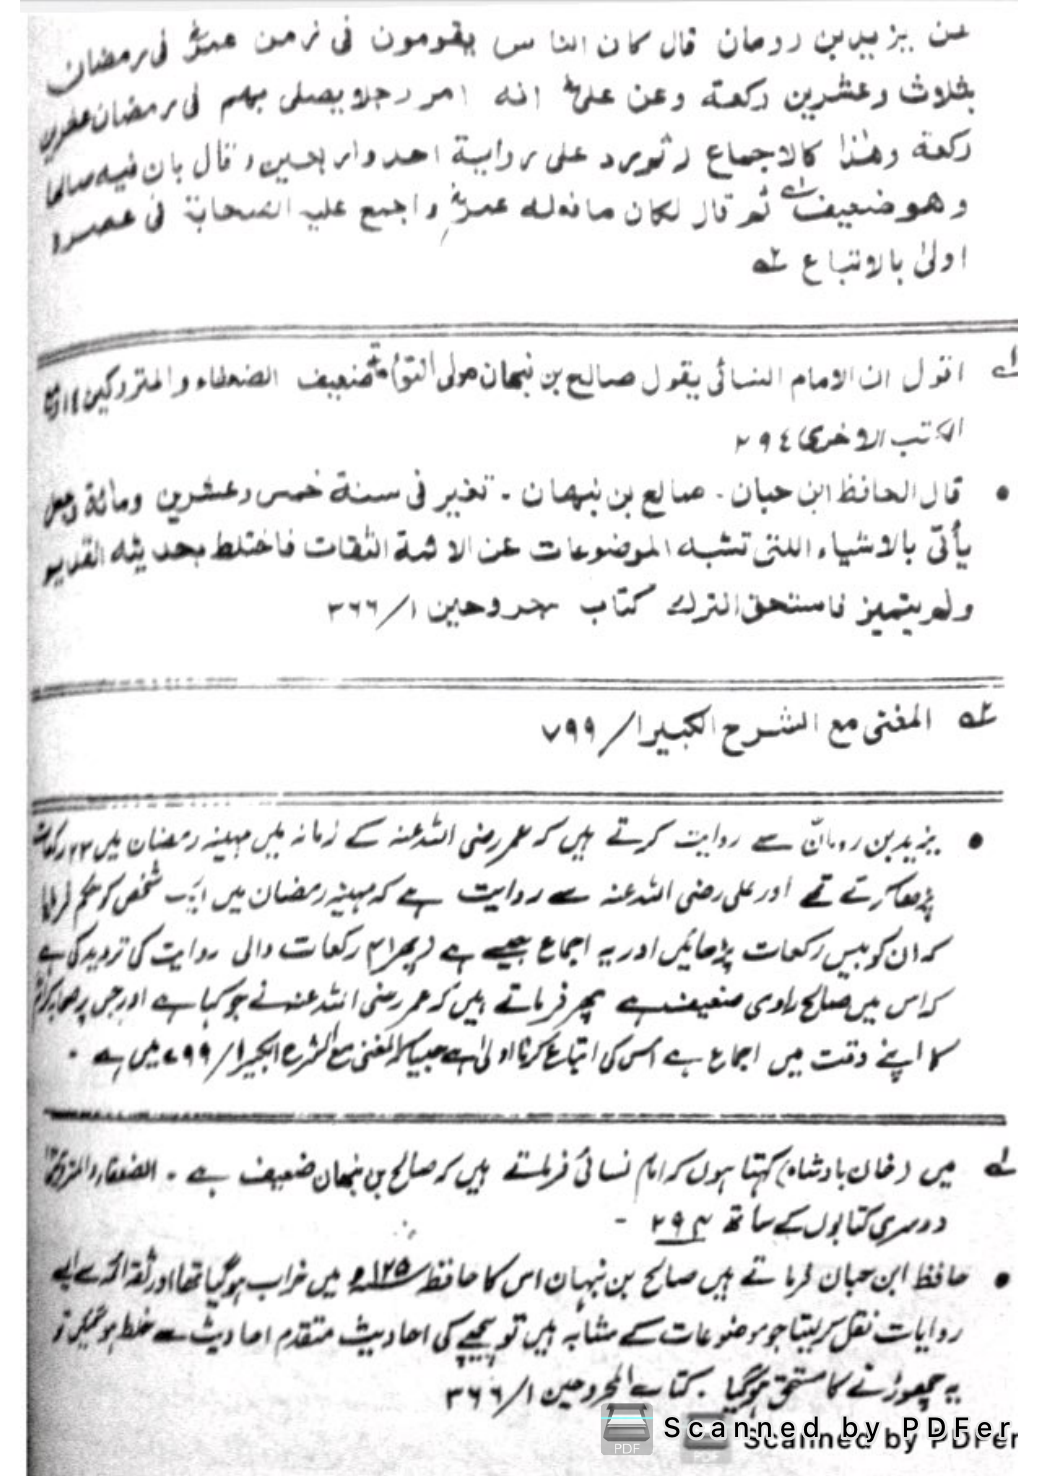 عن يزيد بن رومان قال كان الناس يقومون فى زمن عمرؓ فى رمضان
بثلاث وعشرين ركعة وعن علىؓ انه امر رجلا يصلى بهم فى رمضان عشرين
ركعة وهذا كالاجماع ثم رد على رواية احد واربعين وقال بان فيه صالحا
وهو ضعيف ۱ ثم قال لكان ما فعله عمرؓ واجمع عليه الصحابة فى عصره
اولىٰ بالاتباع ۲
۱ اقول ان الامام النسائى يقول صالح بن نبهان مولى التوأمة ضعيف الضعفاء والمتروكين
الكتب الاخرى ٢٩٤
• قال الحافظ ابن حبان - صالح بن نبهان - تغير فى سنة خمس وعشرين ومائة وجعل
يأتى بالاشياء اللتى تشبه الموضوعات عن الائمة الثقات فاختلط بحديثه القديم
ولم يتميز فاستحق الترك كتاب مجروحين ۱/۳٦٦
۲ المغنى مع الشرح الكبير ۱/۷۹۹
• یزید بن رومانؒ سے روایت کرتے ہیں کہ عمر رضی اللہ عنہ کے زمانہ میں مہینہ رمضان میں ۲۳ رکعات
پڑھا کرتے تھے اور علی رضی اللہ عنہ سے روایت ہے کہ مہینہ رمضان میں ایک شخص کو حکم فرمایا
کہ ان کو بیس رکعات پڑھائیں اور یہ اجماع جیسے ہے (پھر ۴۱ رکعات والی روایت کی تردید کی ہے
کہ اس میں صالح راوی ضعیف ہے پھر فرماتے ہیں کہ عمر رضی اللہ عنہ نے جو کیا ہے اور جس پر صحابہ کرام
کا اپنے وقت میں اجماع ہے اس کی اتباع کرنا اولیٰ ہے جیسا کہ المغنی مع الشرح الکبیر ۱/۷۹۹ میں ہے ۔
۱ میں (خان بادشاہ) کہتا ہوں کہ امام نسائیؒ فرماتے ہیں کہ صالح بن نبھان ضعیف ہے ۔ الضعفاء والمتروکین
دوسری کتابوں کے ساتھ ۲۹۴ -
• حافظ ابن حبان فرماتے ہیں صالح بن نبہان اس کا حافظہ ۱۲۵ھ میں خراب ہو گیا تھا اور ثقہ ائمہ سے ایسے
روایات نقل کر لیتا جو موضوعات کے مشابہ ہیں تو پیچھے کی احادیث متقدم احادیث سے خلط ہو گئیں تو
یہ چھوڑنے کا مستحق ہو گیا ۔ کتاب المجروحین ۱/۳٦٦
Scanned by PDFer
Scanned by PDFer